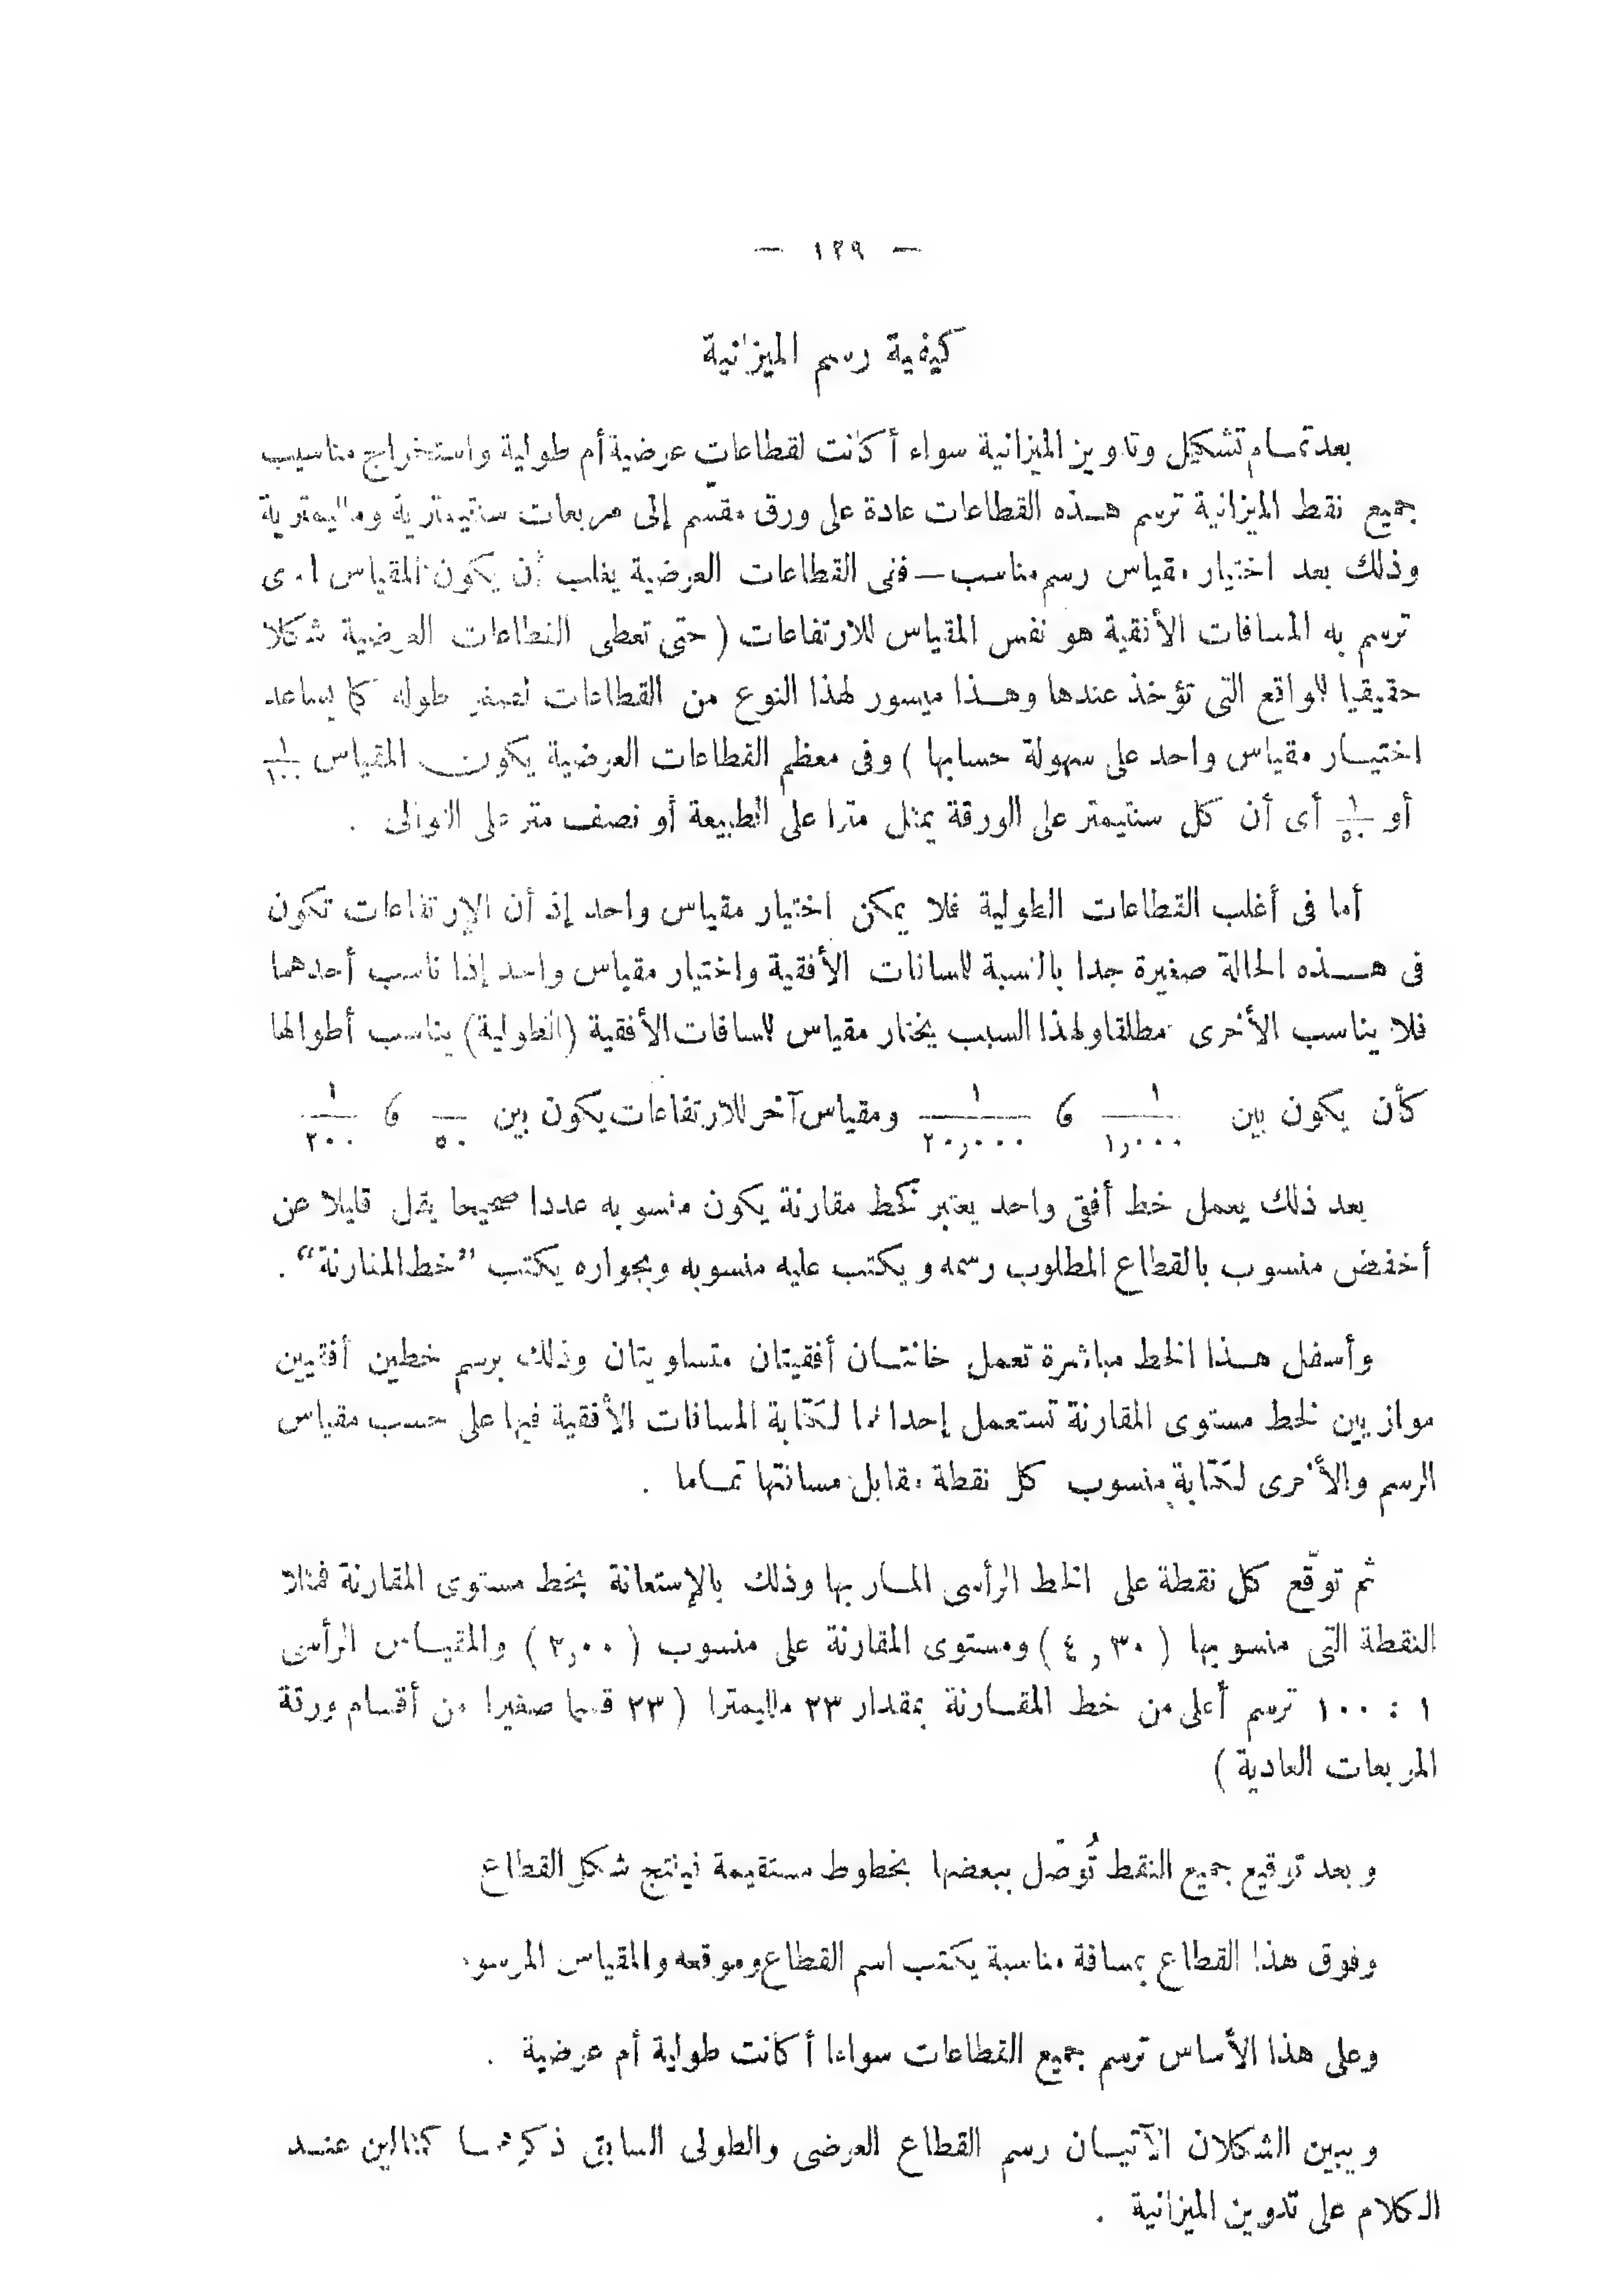 — ١٢٩ —
كيفية رسم الميزانية
بعد تمام تشكيل وتدوين الميزانية سواء أكانت لقطاعات عرضية أم طولية واستخراج مناسيب
جميع نقط الميزانية ترسم هذه القطاعات عادة على ورق مقسّم إلى مربعات سنتيمترية ومليمترية
وذلك بعد اختيار مقياس رسم مناسب — ففى القطاعات العرضية يغلب أن يكون المقياس الذى
ترسم به المسافات الأفقية هو نفس المقياس للارتفاعات ( حتى تعطى القطاعات العرضية شكلا
حقيقيا للواقع التى تؤخذ عندها وهذا ميسور لهذا النوع من القطاعات لصغر طوله كما يساعد
اختيار مقياس واحد على سهولة حسابها ) وفى معظم القطاعات العرضية يكون المقياس ١/١٠٠
أو ١/٥٠ أى أن كل سنتيمتر على الورقة يمثل مترا على الطبيعة أو نصف متر على التوالى .
أما فى أغلب القطاعات الطولية فلا يمكن اختيار مقياس واحد إذ أن الإرتفاعات تكون
فى هذه الحالة صغيرة جدا بالنسبة للسافات الأفقية واختيار مقياس واحد إذا ناسب أحدهما
فلا يناسب الأخرى مطلقا ولهذا السبب يختار مقياس للسافات الأفقية (الطولية) يناسب أطوالها
كأن يكون بين ١/١,٠٠٠ و ١/٢٠,٠٠٠ ومقياس آخر للارتفاعات يكون بين —/٥٠ و ١/٢٠٠
بعد ذلك يعمل خط أفقى واحد يعتبر كخط مقارنة يكون منسوبه عددا صحيحا يقل قليلا عن
أخفض منسوب بالقطاع المطلوب رسمه ويكتب عليه منسوبه وبجواره يكتب ”خط المقارنة“ .
وأسفل هذا الخط مباشرة تعمل خانتان أفقيتان متساويتان وذلك برسم خطين أفقيين
موازيين لخط مستوى المقارنة تستعمل إحداهما لكتابة المسافات الأفقية فيها على حسب مقياس
الرسم والأخرى لكتابة منسوب كل نقطة مقابل مسافتها تماما .
ثم توقّع كل نقطة على الخط الرأسى المار بها وذلك بالإستعانة بخط مستوى المقارنة فمثلا
النقطة التى منسوبها ( ٤,٣٠ ) ومستوى المقارنة على منسوب ( ٢,٠٠ ) والمقياس الرأسى
١ : ١٠٠ ترسم أعلى من خط المقارنة بمقدار ٢٣ ملليمترا ( ٢٣ قسما صغيرا من أقسام ورقة
المربعات العادية )
وبعد توقيع جميع النقط تُوصّل ببعضها بخطوط مستقيمة فينتج شكل القطاع
وفوق هذا القطاع بمسافة مناسبة يكتب اسم القطاع وموقعه والمقياس المرسو
وعلى هذا الأساس ترسم جميع القطاعات سواءا أكانت طولية أم عرضية .
ويبين الشكلان الآتيان رسم القطاع العرضى والطولى السابق ذكرهما كمثالين عند
الكلام على تدوين الميزانية .